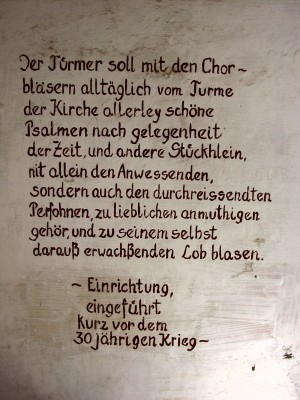 Der Türmer soll mit den Chor~
bläsern alltäglich vom Turme
der Kirche allerley schöne
Psalmen nach gelegenheit
der Zeit, und andere Stückhlein,
nit allein den Anwessenden,
sondern auch den durchreissendten
Persohnen, zu lieblichen anmuthigen
gehör, und zu seinem selbst
darauß erwachßenden Lob blasen.
~ Einrichtung,
eingeführt
Kurz vor dem
30 jährigen Krieg ~